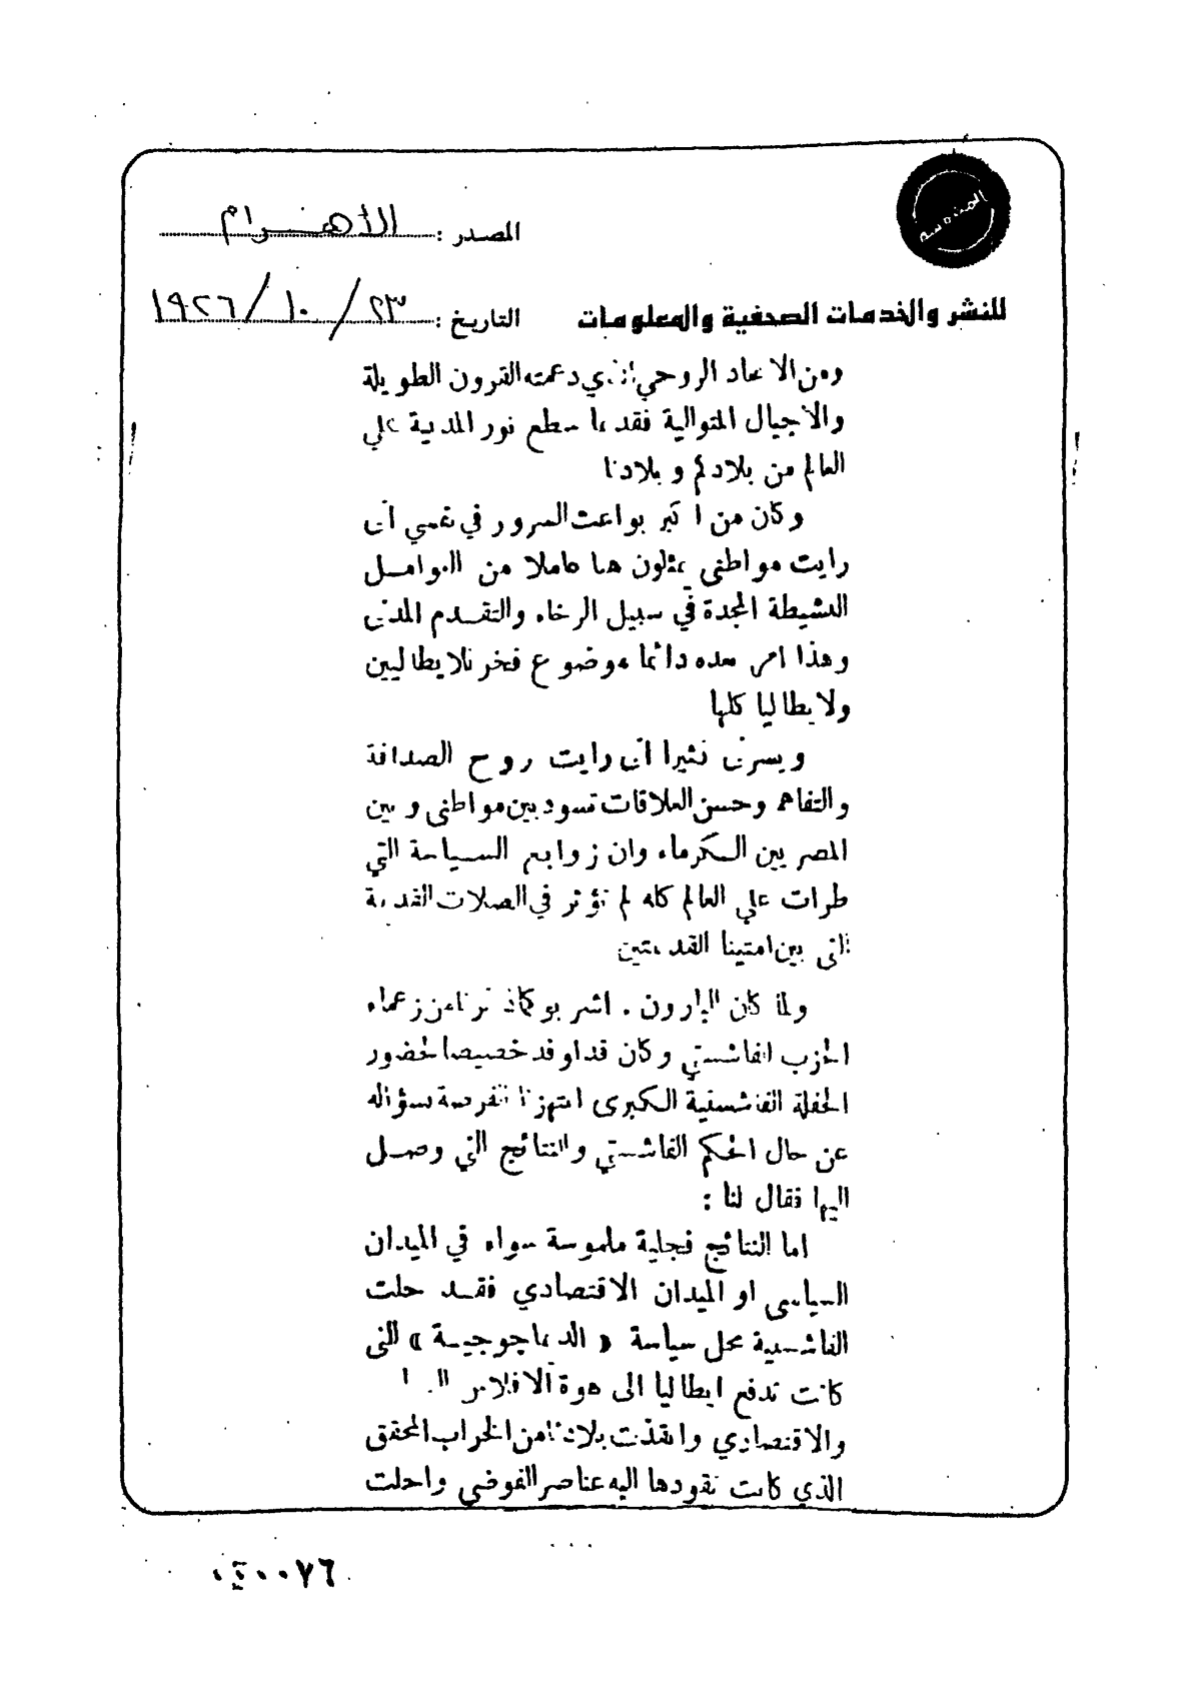 المصدر : الأهرام
للنشر والخدمات الصحفية والمعلومات
التاريخ : ٢٣ / ١٠ / ١٩٢٦
ومن الاتحاد الروحي الذي دعمته القرون الطويلة
والاجيال المتوالية فقديما سطع نور المدنية علي
العالم من بلادكم و بلادنا
وكان من اكبر بواعث السرور في نفسي ان
رايت مواطني يمثلون هنا عاملا من العوامل
النشيطة المجدة في سبيل الرخاء والتقدم المدني
وهذا امر نعده دائما موضوع فخر للايطاليين
ولايطاليا كلها
ويسرني كثيرا ان رايت روح الصداقة
والتفاهم وحسن العلاقات تسود بين مواطني و بين
المصريين الكرماء وان زوابع السياسة التي
طرات علي العالم كله لم تؤثر في الصلات القديمة
التي بين امتينا القديمتين
ولما كان البارون . من زعماء
الحزب الفاشستي وكان قد اوفد خصيصا لحضور
الحفلة الفاشستية الكبرى انتهزنا الفرصة بسؤاله
عن حال الحكم الفاشستي والنتائج التي وصل
اليها فقال لنا :
اما النتائج فجلية ملموسة سواء في الميدان
السياسي او الميدان الاقتصادي فقد حلت
الفاشستية محل سياسة « الديماجوجية » التي
كانت تدفع ايطاليا الى هوة الافلاس
والاقتصادي وانقذت بلادنا من الخراب المحقق
الذي كانت تقودها اليه عناصر الفوضى واحلت